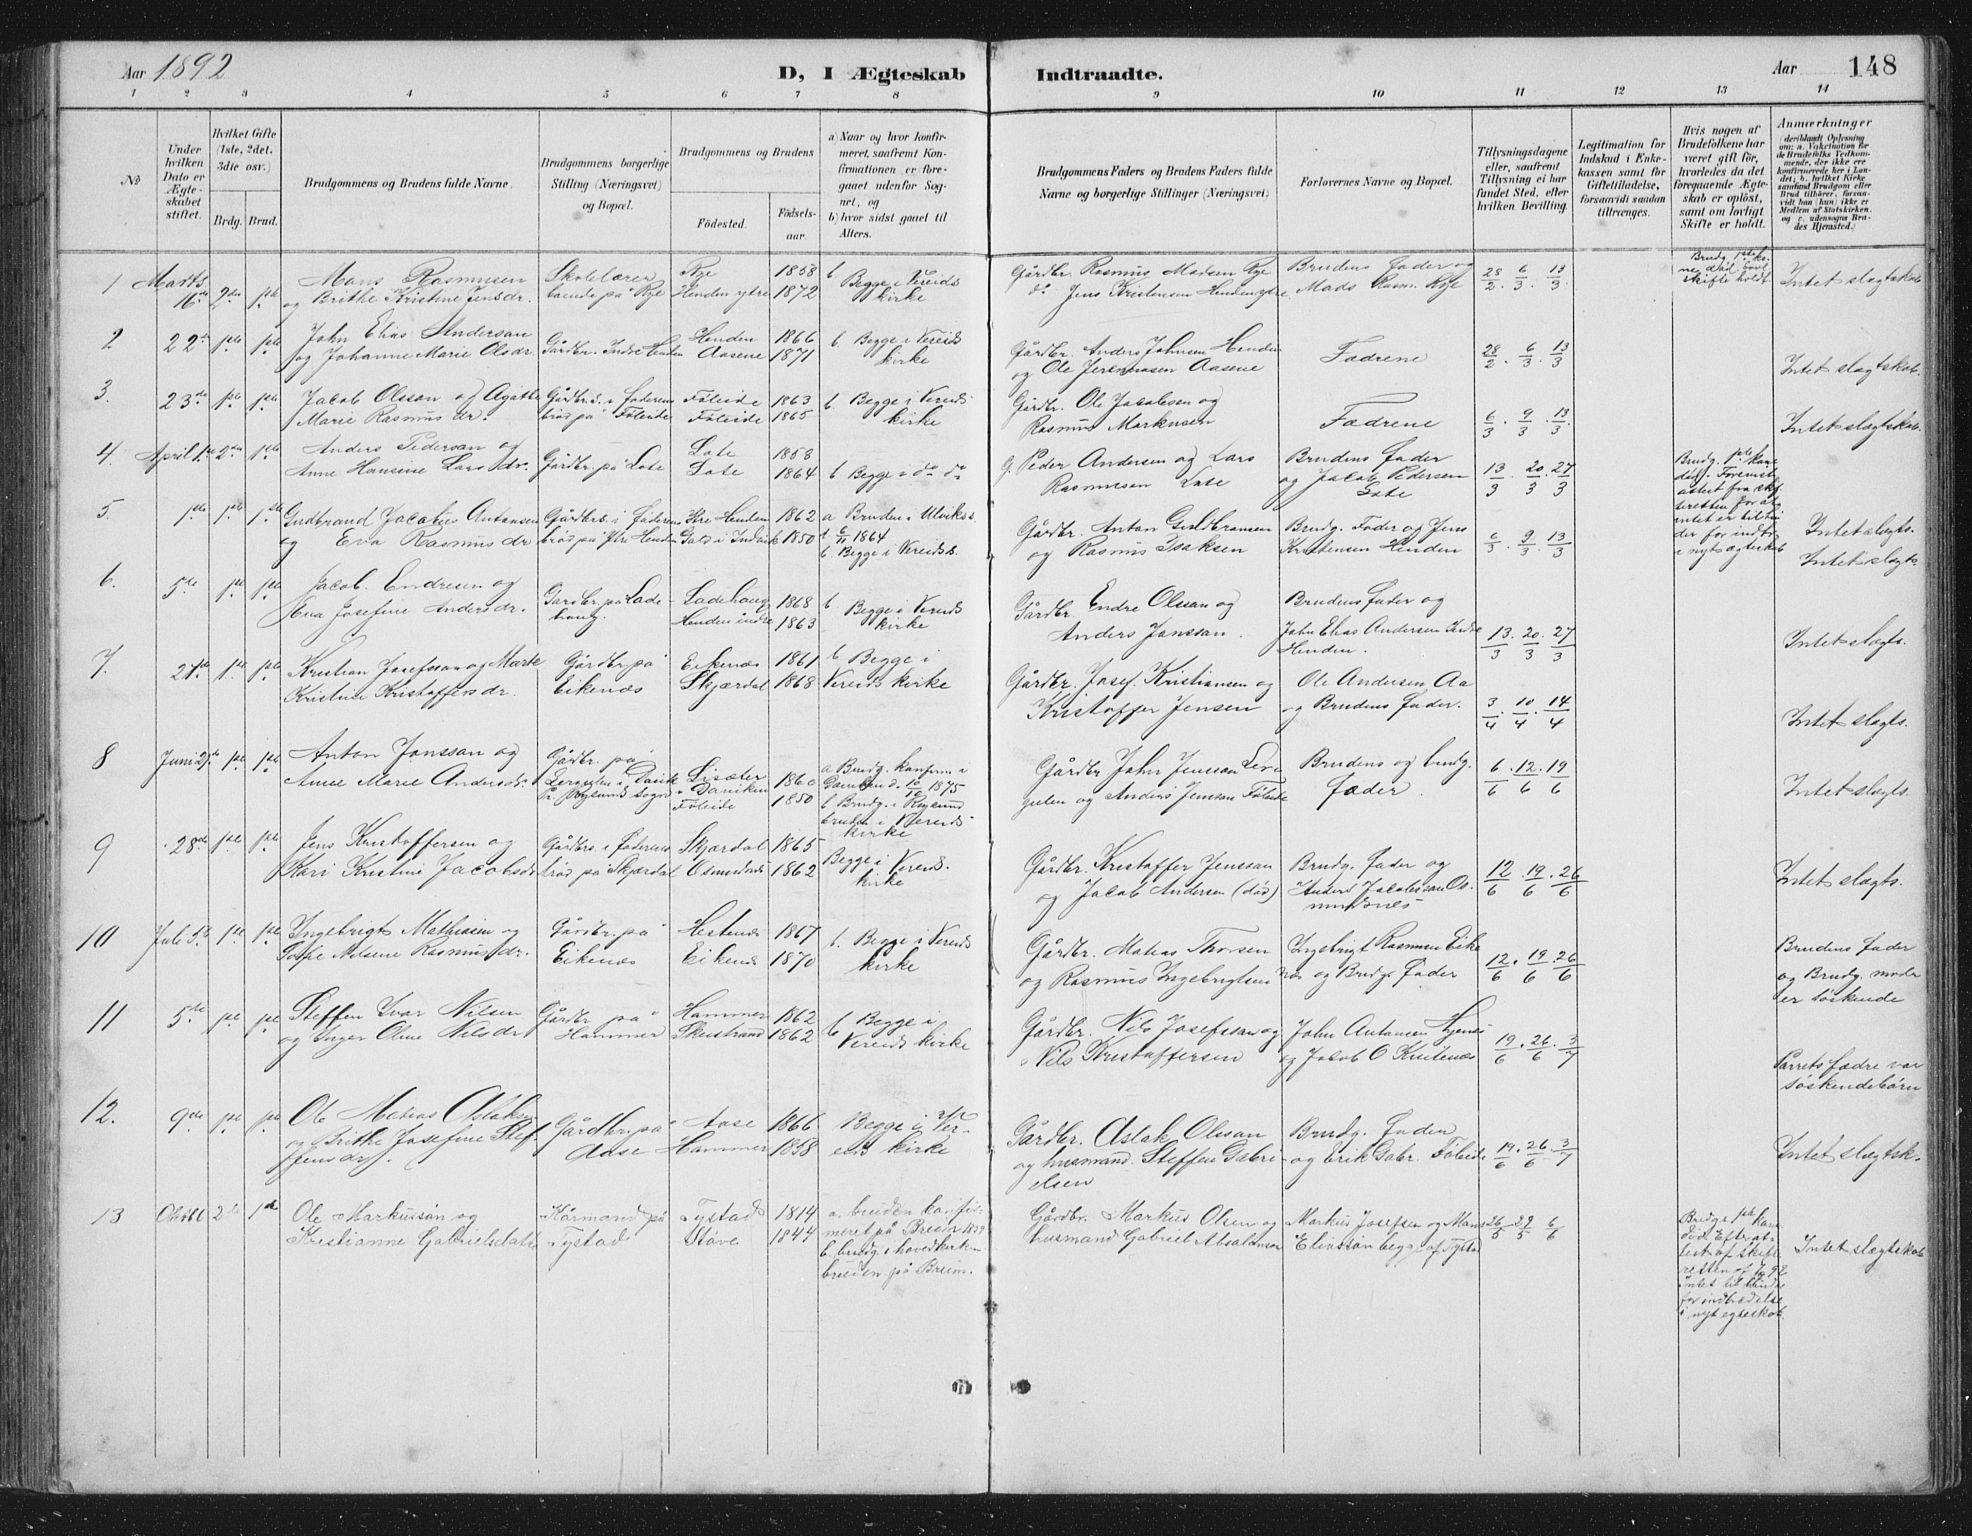 Aar 1892
D, I Ægteskab Indtraadte.
Aar 148
1 2 3 4 5 6 7 8 9 10 11 12 13 14
No
Under hvilken Dato er Ægteskabet stiftet.
Hvilket Gifte (1ste, 2det, 3die osv.)
Brdg. Brud.
Brudgommens og Brudens fulde Navne.
Brudgommens borgerlige Stilling (Næringsvei) og Bopæl.
Brudgommens og Brudens
Födested.
Födselsaar.
a) Naar og hvor konfirmeret, saafremt Konfirmationen er foregaaet udenfor Sognet, og
b) hvor sidst gaaet til Alters.
Brudgommens Faders og Brudens Faders fulde Navne og borgerlige Stillinger (Næringsvei)
Forlovernes Navne og Bopæl.
Tillysningsdagene eller, saafremt Tillysning ei har fundet Sted, efter hvilken Bevilling.
Legitimation for Indskud i Enkekassen samt for Giftetilladelse, forsaavidt saadan tiltrænges.
Hvis nogen af Brudefolkene har været gift för, hvorledes da det foregaaende Ægteskab er oplöst, samt om lovligt Skifte er holdt.
Anmærkninger
(deriblandt Oplysning om: a. Vakcination for de Brudefolks Vedkommende, der ikke ere konfirmerede her i Landet; b. hvilket Kirkesamfund Brudgom eller Brud tilhörer, forsaavidt han (hun) ikke er Medlem af Statskirken. og c. udensogns Brudes Hjemsted.)
1 Marts 16de 2den 1ste Mons Rasmussen og Brithe Kristine Jensdr. Skolelærer boende på Rye Rye Henden ytre 1858 1872 b Begge i Vereids kirke Gårdbr. Rasmus Madsen Rye do Jens Kristensen Henden ytre Brudens fader og Mads Rasm. Rye 28/2 . 6/3 . 13/3 Intet slægtskab
2 22de 1ste 1ste John Elias Anderssan og Johanne Marie Olsdr. Gårdbr. Indre Henden Henden Aasene 1866 1871 b Begge i Vereids kirke Gårdbr. Anders Johnsen Henden og Ole Jeremiasen Aasene Fædrene 28/2 . 6/3 . 13/3 Intet slægtskab.
3. 23de 1ste 1ste Jacob Olssan og Agathe Marie Rasmusdr. Gårdbr.s. i faderens bröd på Föleide Föleide Föleide 1863 1865 b Begge i Vereids kirke Gårdbr. Ole Jacobsen og Rasmus Markussen Fædrene 6/3 . 9/3 . 13/3 Intet slægtskab
4. April 1ste 2den 1ste Anders Pedersan og Anne Hansine Larsdr. Gårdbr. på Lote Lote Lote 1858 1864 b Begge i do do G. Peder Andersen og Lars Rasmussen Lote Brudens fader og Jacob Pedersen Lote 13/3 . 20/3 . 27/3
5. 1ste 1ste 1ste Gudbrand Jacobus Antonsen og Eva Rasmusdr Gårdbrs. i faderens bröd på Ytre Henden Ytre Henden 1862 1850 a Bruden i Utviks k. 6/11 1864 b Begge i Vereids k. Gårdbr. Anton Guldbransen og Rasmus Isaksen Brudg. Fader og Jens Kristensen Henden 6/3 . 9/3 . 13/3 Intet slægts.
Intet slægts.
6. 5te 1ste 1ste Jacob Endresen og Eva Josefine Andersdr. Gardbr. på Ladehaug. Ladehaug Henden indre 1868 1863 b Begge i Vereids kirke Gårdbr. Endre Olssan og Anders Jonssan. Brudens fader og John Elias Andersen Indre Henden. 13/3 . 20/3 . 27/3 Intet slægts.
7. 21de 1ste 1ste Kristian Josefssan og Marte Kristine Kristoffersdr. Gårdbr. på Eikenæs Eikenæs Skjærdal 1861 1868 b Begge i Vereids kirke Gårdbr. Josef Kristiansen og Kristoffer Jensen Ole Andersen Aa og Brudens fader. 3/4 . 10/4 . 14/4 Intet slægts.
8 Juni 1ste 1ste Anton Jonssan og Anne Marie Andersdr. Gårdbr. på Lisæter Föleide 1860 1850 a Brudg. konfirm. i 1875 b Brudg. i bruden i Vereids kirke Gårdbr John Jenssan og Anders Jenssan Föleide Brudens og brudg. fader. 6/6 . 12/6 . 19/6 Intet slægts.
9 28de 1ste 1ste Jens Kristoffersen og Kari Kristine Jacobsdr Gårdbrs. i Faderens bröd på Skjærdal Skjærdal Osmundnæs 1865 1862 Begge i Vereids. kirke Gårdbr. Kristoffer Jenssan og Jacob Andersen (död) Brudg. fader og Anders Jacobssan Osmundnæs 12/6 . 19/6 . 26/6 Intet slægts.
10 Juli 3die 1ste 1ste Ingebrigt Mathiasen og Rasmusdr. Gårdbr. på Eikenæs Hestenæs Eikenæs 1867 1870 b. Begge i Vereids kirke Gårdbr. Matias Thorsen og Rasmus Ingebrigtsen Ingebrigt Rasmussen Eikenæs og Brudg. fader 12/6 . 19/6 . 26/6 Brudens fader og Brudg. moder er söskende
11 5te 1ste 1ste Steffen Ivar Nilsen og Inger Oline Nilsdr Gårdbr på Hammer Hammer Skeistrand 1862 1862 b Begge i Vereids kirke Gårdbr. Nils Josefssan og Nils Kristoffersen John Antonsen Hjenes og Jacob O 19/6 . 26/6 . 3/7 Parrets fædre var söskendebörn
12. 9de 1ste 1ste Ole Matias Aslaksen og Brithe Josefine Steffensdr. Gårdbr. på Aase Aase Hammer 1866 1858 Begge i Vereids kirke Gårdbr. Aslak Olssan og husmand. Steffen Gabrielsen Brudg. fader og Erik Gabr. Föleide 19/6 . 26/6 . 3/7 Intet slægtsk.
13 2 1ste Ole Markusson og Kristianne Gabrielsdatt. Kårmand på Tystad Tystad Stöve 1814 1844 a. bruden konfirmeret på Breim 1859 b. brudg. i hovedkirken bruden på Breim. Gårdbr. Markus Olsen og husmand Gabriel Absalonsen Markus Josefsen og Mons Eliassön begge af Tystad 26/5 29/5 6/6 Intet slægtskab